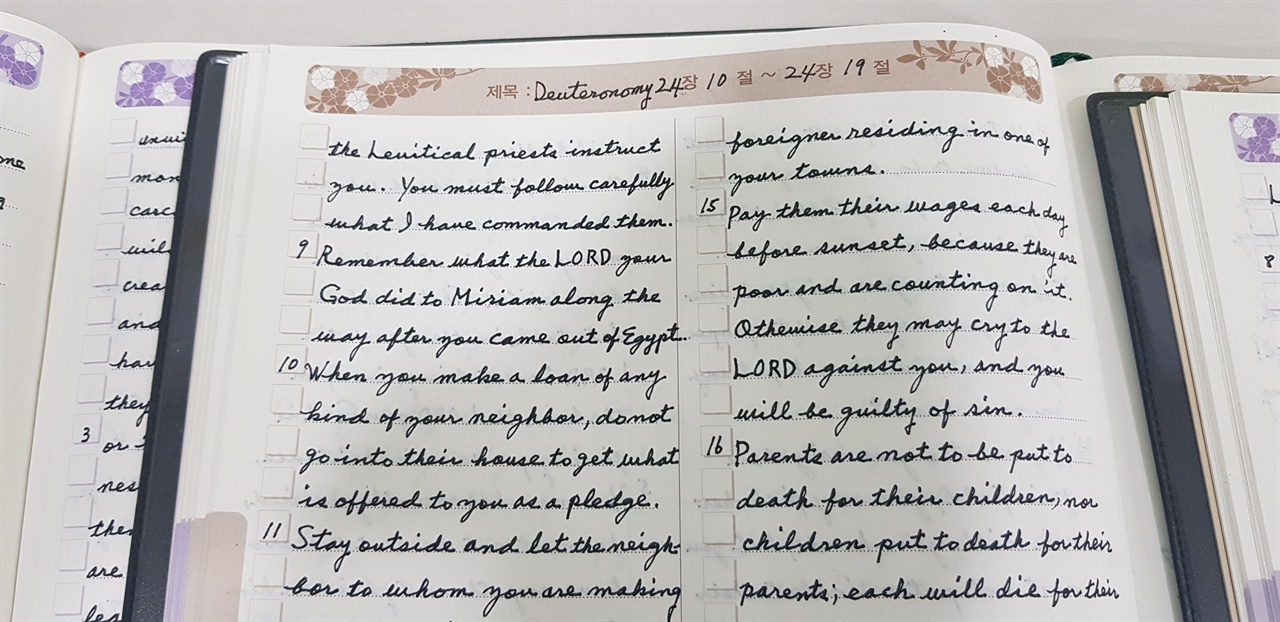 제목 : Deuteronomy 24장 10 절 ~ 24장 19 절
the Levitical priests instruct
you. You must follow carefully
what I have commanded them.
9 Remember what the LORD your
God did to Miriam along the
way after you came out of Egypt.
10 When you make a loan of any
kind of your neighbor, do not
go into their house to get what
is offered to you as a pledge.
11 Stay outside and let the neigh-
bor to whom you are making
foreigner residing in one of
your towns.
15 Pay them their wages each day
before sunset, because they are
poor and are counting on it.
Othewise they may cry to the
LORD against you, and you
will be guilty of sin.
16 Parents are not to be put to
death for their children, nor
children put to death for their
parents; each will die for their
and
they
3 or
are
8